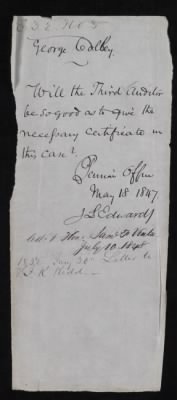 George Dolbey
Will the Third Auditor
be so good as to give the
necessary certificate in
this case?
Pension Office
May 18 1847.
J L Edwards
Hon. Saml F
July 10. 1848
1852 Jany 30th Letter to
K